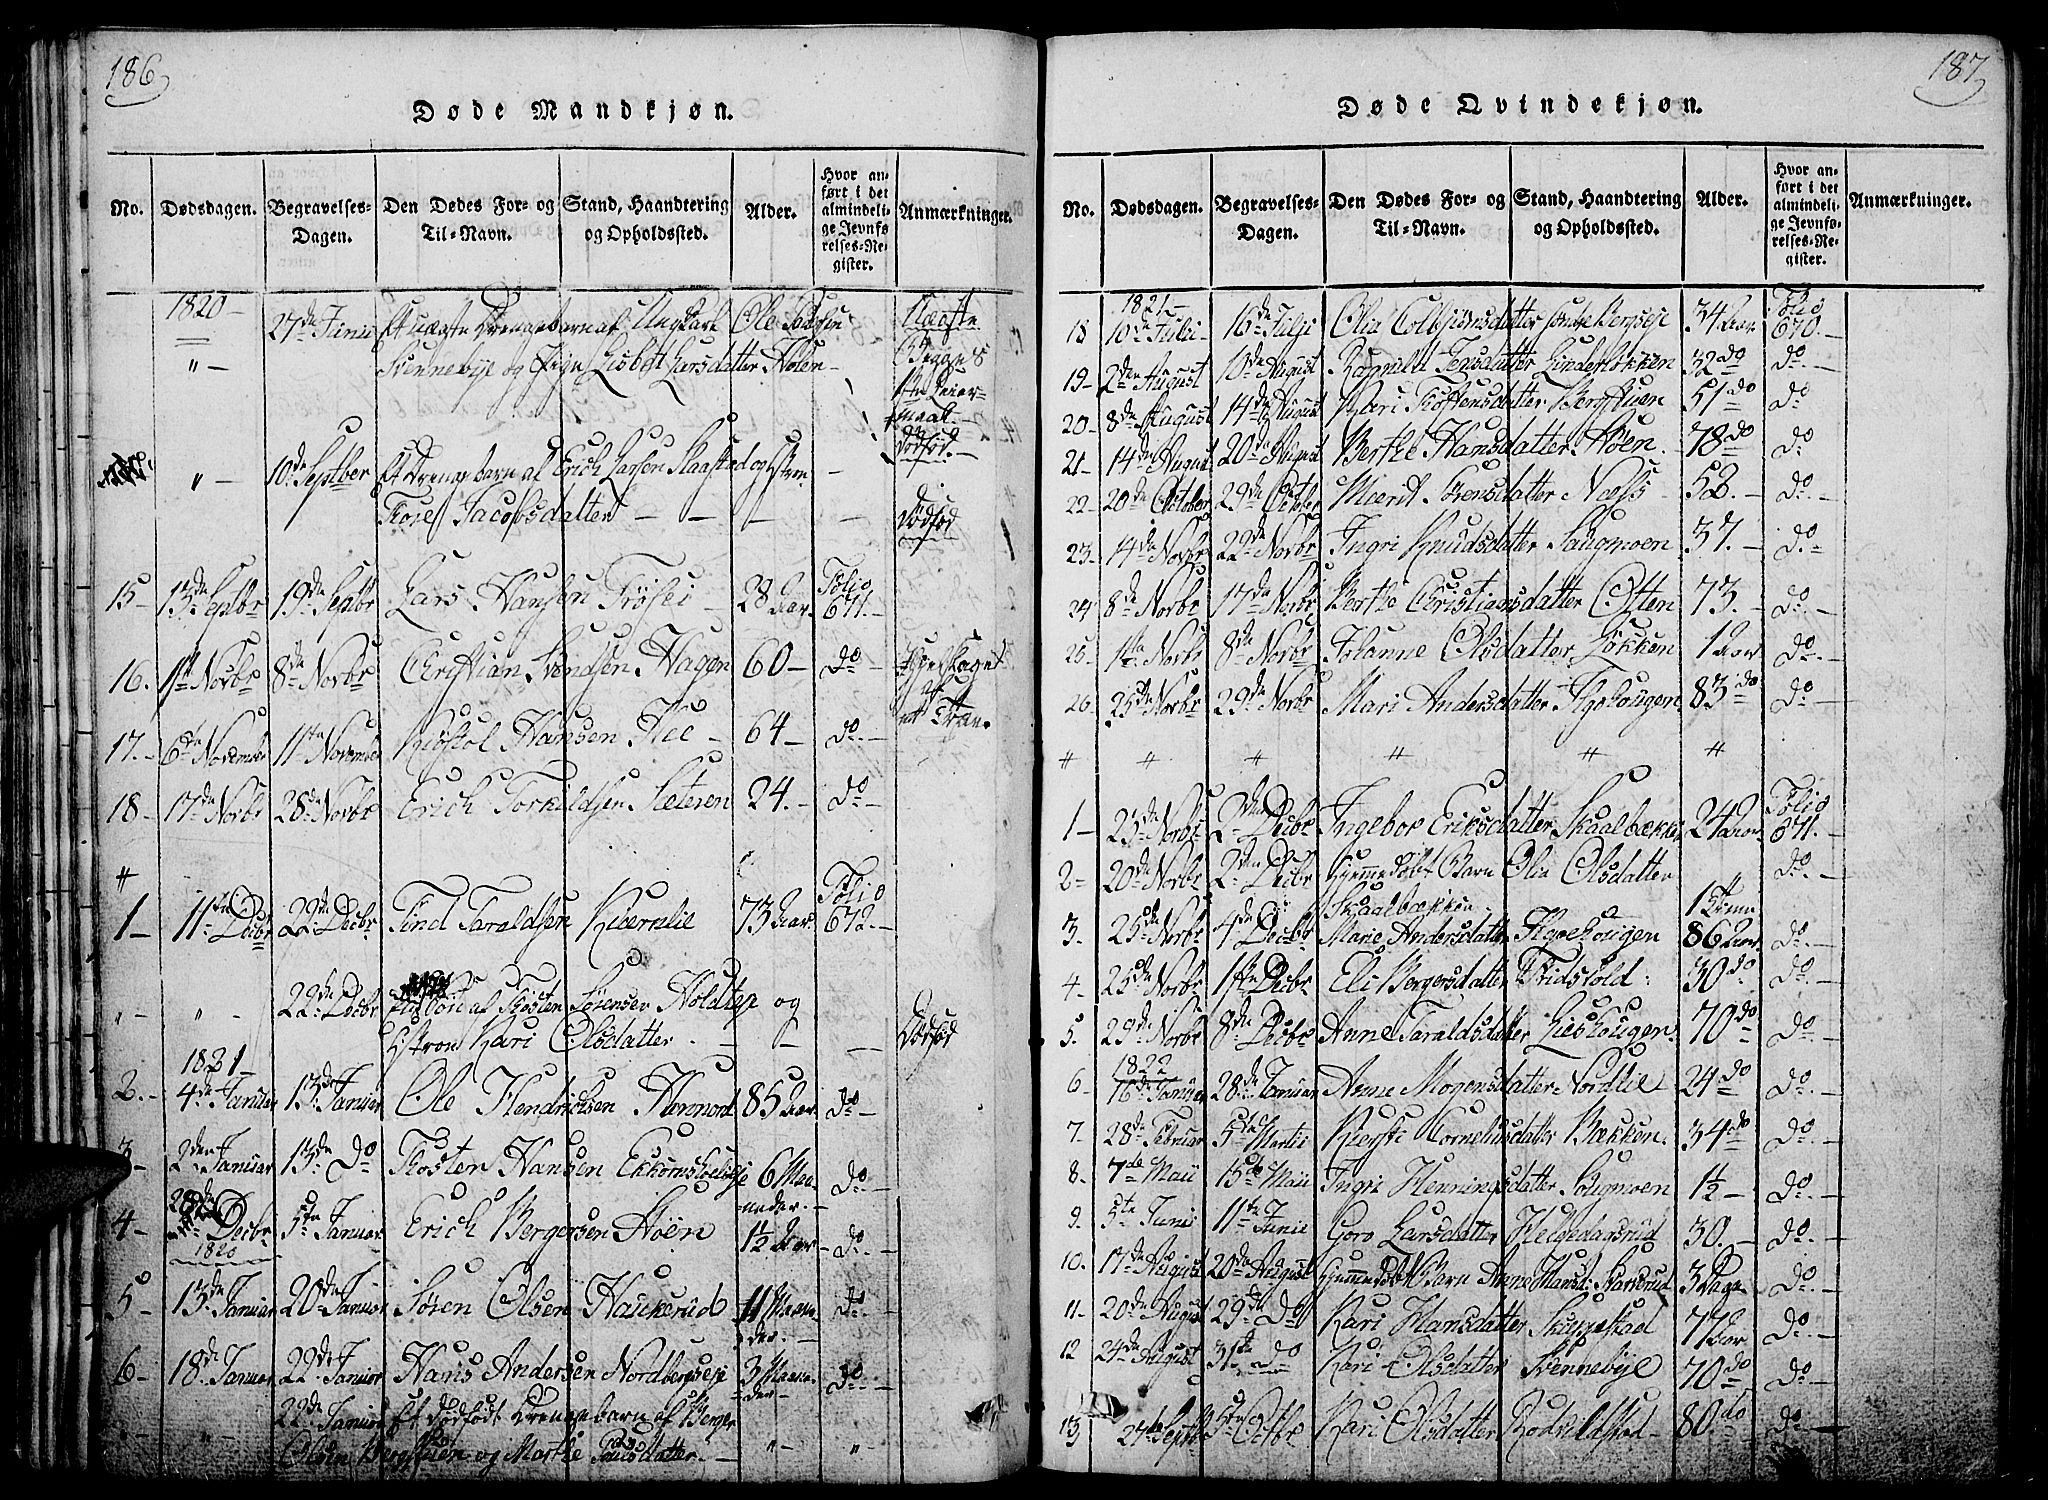 186
Døde Mandkjøn.
No. Dødsdagen. Begravelses-Dagen. Den Dødes For- og Til-Navn. Stand, Haandtering og Opholdssted. Alder. Hvor anført i det almindelige Jevnførelses-Register. Anmærkninger.
1820 –
27de Junii Et uægte Drengebarn af Ungkarl Ole Larsen
" – Svennebye og Pige Lisbet Larsdatter Høien – Begges
1ste Leiermaal. –
Dødfød. –
" – 10de Septber Et Drengebarn af Erich Larsen Slaastad og Hustru
Thore Jacobsdatter – – – – Dødfød
15 – 13de Septbr 19de Septbr Lars Hansen Frøsei – 28 Aar. Folio 671. –
16. 1ste Novbr 8de Novbr Christian Svendsen Hagen 60 – Do – Ihjelslaget af et Træe.
17. – 6te November 11te November Kiøstol Hansen Kee – 64 – Do. –
18 – 17de Novbr 28de Novbr Erich Torkildsen Sæteren 24. – Do –
#
1 – 11te Decbr 22de Decbr Find Taraldsen Kiærnlie 73 Aar. Folio 672. –
" – " – 22de Decbr af Thosten Sørensen Holdten og
Hustroe Kari Olsdatter. – " – — Dødfød
1821 –
2. – 4de Januar 13de Januar Ole Hendrichsen Hennord 85 Aar. Do –
3 – 2den Januar 13de Do Thosten Hansen 6 Maaneder. – Do. –
4 – 28de Decbr 1820 5te Januar Erich Bergersen Høien 1½ Aar – Do. –
5 – 13de Januar 20de Januar Søren Olsen Haukerud 11 Maaneder. – Do. –
6 – 18de Januar 22de Januar Hans Andersen Nordbergseje 3 Maaneder. – Do. –
" – " – 22de Januar Et dødfødt Drengebarn af Berger
Olsen og Marthe datter. – " – "
187
Døde Qvindekjøn.
No. Dødsdagen. Begravelses-Dagen. Den Dødes For- og Til-Navn. Stand, Haandtering og Opholdssted. Alder. Hvor anført i det almindelige Jevnførelses-Register. Anmærkninger.
1821 –
18 10de Juli – 16de Julji Olia Colbiørnsdatter 34 Aar Folio 670. –
19 – 2den August 10de August Ragnild Jensdatter Linderløkken 32 do Do. –
20 – 8de August 14de August Kari Thostensdatter 51 do Do
21 – 14de August 20de August Berthe Hansdatter Høien. – 78 do Do
22 – 20de October 29de October Marit Sørensdatter Næss – 58. – Do. –
23. – 14de Novbr 22de Novbr Ingri Knudsdatter Haugmoen 37. – Do. –
24 8de Novbr 17de Novbr Berthe Christiansdatter Olten 73. – Do. –
25 1ste Novbr 8de Novbr Johanne Olsdatter Løkken 1 Aar Do. –
26 – 25de Novbr 29de Novbr Mari Andersdatter 83 do Do. –
# # # # # #
1 – 23de Novbr 2den Decbr Ingebor Eriksdatter Skaalbækken 24 Aar Folio 671. –
2 – 20de Novbr 2den Decbr Hjemmedøbt Barn Olia Olsdatter Do. –
Skaalbækken – 1 Time
3. 25de Novbr 4de Decbr Marie Andersdatter 86 Aar Do. –
4 – 25de Novbr 1ste Decbr Eli Bergersdatter Fridshold: 30 do Do. –
5. 29de Novbr 8de Decbr Anne Taraldsdatter 70 do Do. –
1822
6 – 16de Januar 28de Januar Anne Mogensdatter Nordlie 24 do Do. –
7 – 28de Februar 5te Martii Kiersti Cornelusdatter Bækken. 34 do Do. –
8. – 7de Maii 15de Maii Ingri Henningsdatter Haugmoen 1½ – Do. –
9 – 5te Junii 11te Junii Goro Larsdatter Heldedagsrud 30. – Do. –
10. 17de August 20de August Hjemmedøbt Barn Anne Hansd: 3 Dage Do. –
11 – 20de August 29de Do Kari Hansdatter Skippestad 77 Aar Do. –
12 24de August 31te Do Kari Olsdatter Svennebye 70 do Do. –
13 24de Septbr 5te Octbr Kari Olsdatter 80 do Do. –